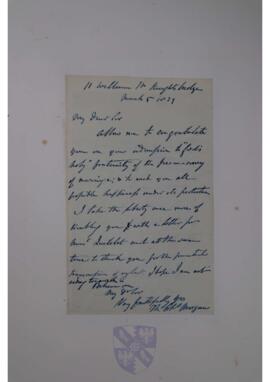 11 William St Knightsbridge
March 5 1839
My Dear Sir
Allow me to congratulate
you on your admission to
holy fraternity of the
of marriage, & to wish you all
possible happiness under its protection
I take the liberty once more of
troubling you with a letter for
and at the same
time to thank you for the punctual
transmission of my last. I hope I am not
My Dr Sir
Very faithfully yrs
Morgan